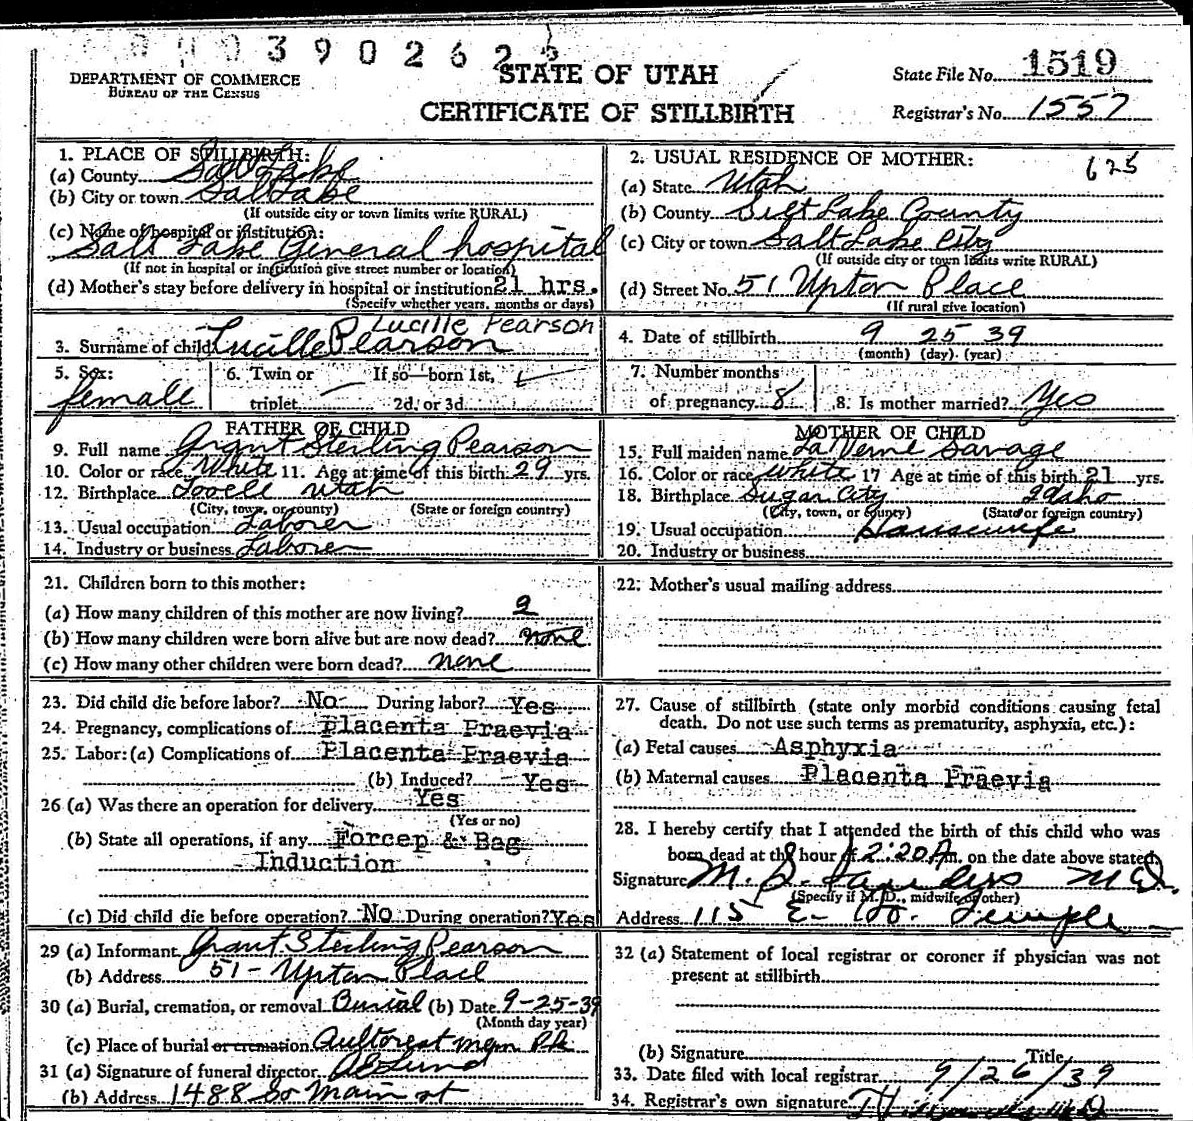 3902623
DEPARTMENT OF COMMERCE
BUREAU OF THE CENSUS
STATE OF UTAH
CERTIFICATE OF STILLBIRTH
State File No. 1519
Registrar's No. 1557
1. PLACE OF STILLBIRTH:
(a) County Salt Lake
(b) City or town Salt Lake
(If outside city or town limits write RURAL)
(c) Name of hospital or institution:
Salt Lake General hospital
(If not in hospital or institution give street number or location)
(d) Mother's stay before delivery in hospital or institution 21 hrs.
(Specify whether years, months or days)
2. USUAL RESIDENCE OF MOTHER: 625
(a) State Utah
(b) County Salt Lake County
(c) City or town Salt Lake City
(If outside city or town limits write RURAL)
(d) Street No. 51 Upton Place
(If rural give location)
Lucille Pearson
3. Surname of child Lucille Pearson
4. Date of stillbirth 9 25 39
(month) (day) (year)
5. Sex: female
6. Twin or triplet If so—born 1st, 2d. or 3d
7. Number months of pregnancy 8
8. Is mother married? Yes
FATHER OF CHILD
9. Full name Grant Sterling Pearson
10. Color or race White 11. Age at time of this birth 29 yrs.
12. Birthplace Utah
(City, town, or county) (State or foreign country)
13. Usual occupation Laborer
14. Industry or business Laborer
MOTHER OF CHILD
15. Full maiden name La Verne Savage
16. Color or race white 17 Age at time of this birth 21 yrs.
18. Birthplace Sugar City Idaho
(City, town, or county) (State or foreign country)
19. Usual occupation Housewife
20. Industry or business
21. Children born to this mother:
(a) How many children of this mother are now living? 2
(b) How many children were born alive but are now dead? none
(c) How many other children were born dead? none
22. Mother's usual mailing address
23. Did child die before labor? No During labor? Yes
24. Pregnancy, complications of Placenta Praevia
25. Labor: (a) Complications of Placenta Praevia
(b) Induced? Yes
26 (a) Was there an operation for delivery Yes
(Yes or no)
(b) State all operations, if any Forcep & Bag
Induction
(c) Did child die before operation? No During operation? Yes
27. Cause of stillbirth (state only morbid conditions causing fetal
death. Do not use such terms as prematurity, asphyxia, etc.):
(a) Fetal causes Asphyxia
(b) Maternal causes Placenta Praevia
28. I hereby certify that I attended the birth of this child who was
born dead at the hour of 2:20 m. on the date above stated.
Signature M. S. Sanders M D.
(Specify if M. D., midwife or other)
Address 115 E. So. Temple
29 (a) Informant Grant Sterling Pearson
(b) Address 51 - Upton Place
30 (a) Burial, cremation, or removal Burial (b) Date 9-25-39
(Month day year)
(c) Place of burial or cremation Mem Pk
31 (a) Signature of funeral director
(b) Address 1488 So Main st
32 (a) Statement of local registrar or coroner if physician was not
present at stillbirth
(b) Signature Title
33. Date filed with local registrar 9/26/39
34. Registrar's own signature